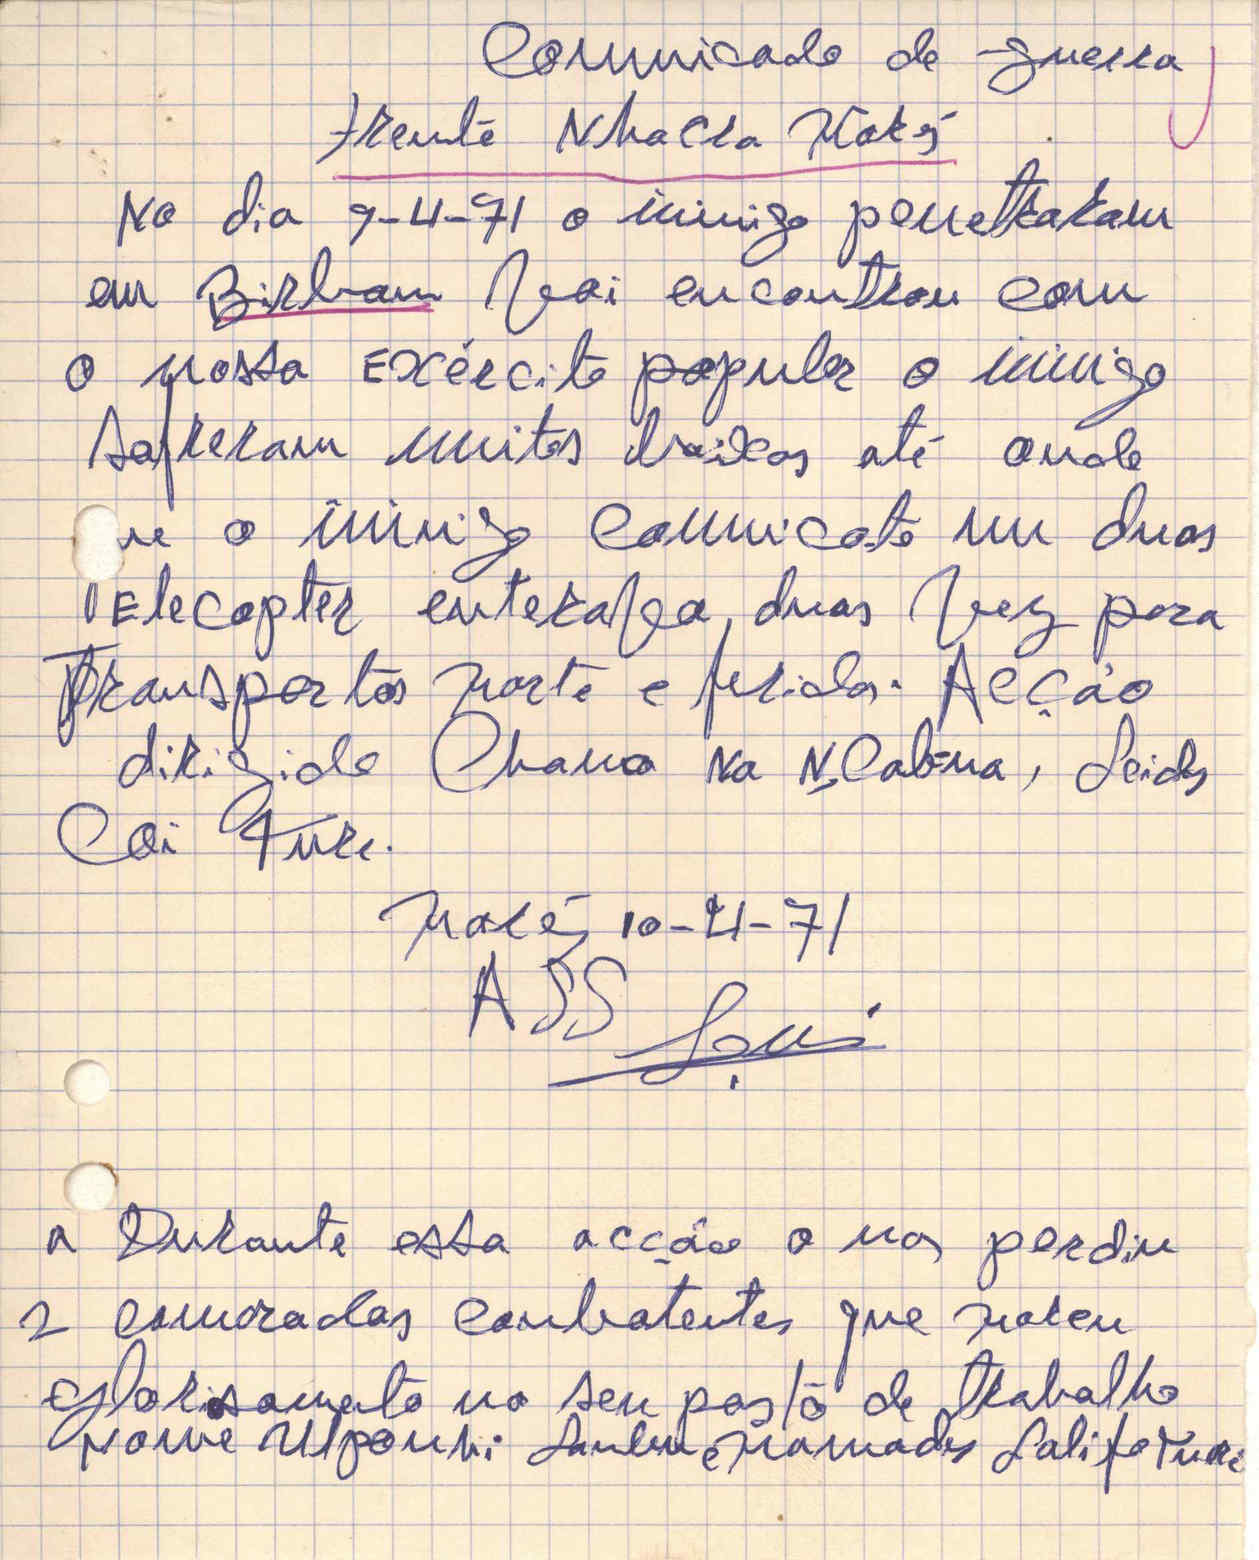 Comunicado de guerra
frente Nhacra Morés
No dia 9-4-71 o inimigo penetraram
em Birbam Vai encontrou com
o nossa EXército popular o inimigo
Sofreram muitos baixas até onde
que o inimigo comunicato um duas
Elecopter enterava duas Vez para
Transportos morte e feridos. Acção
dirigido Chama Na N,Cabna, Seidy
Coi Ture.
Morés 10-4-71
ASS
a Durante essa acção o nos perdiu
2 camoradas combatentes que moreu
gloriosamento no seu posto de trabalho
Nome e Mamady Salifo Ture